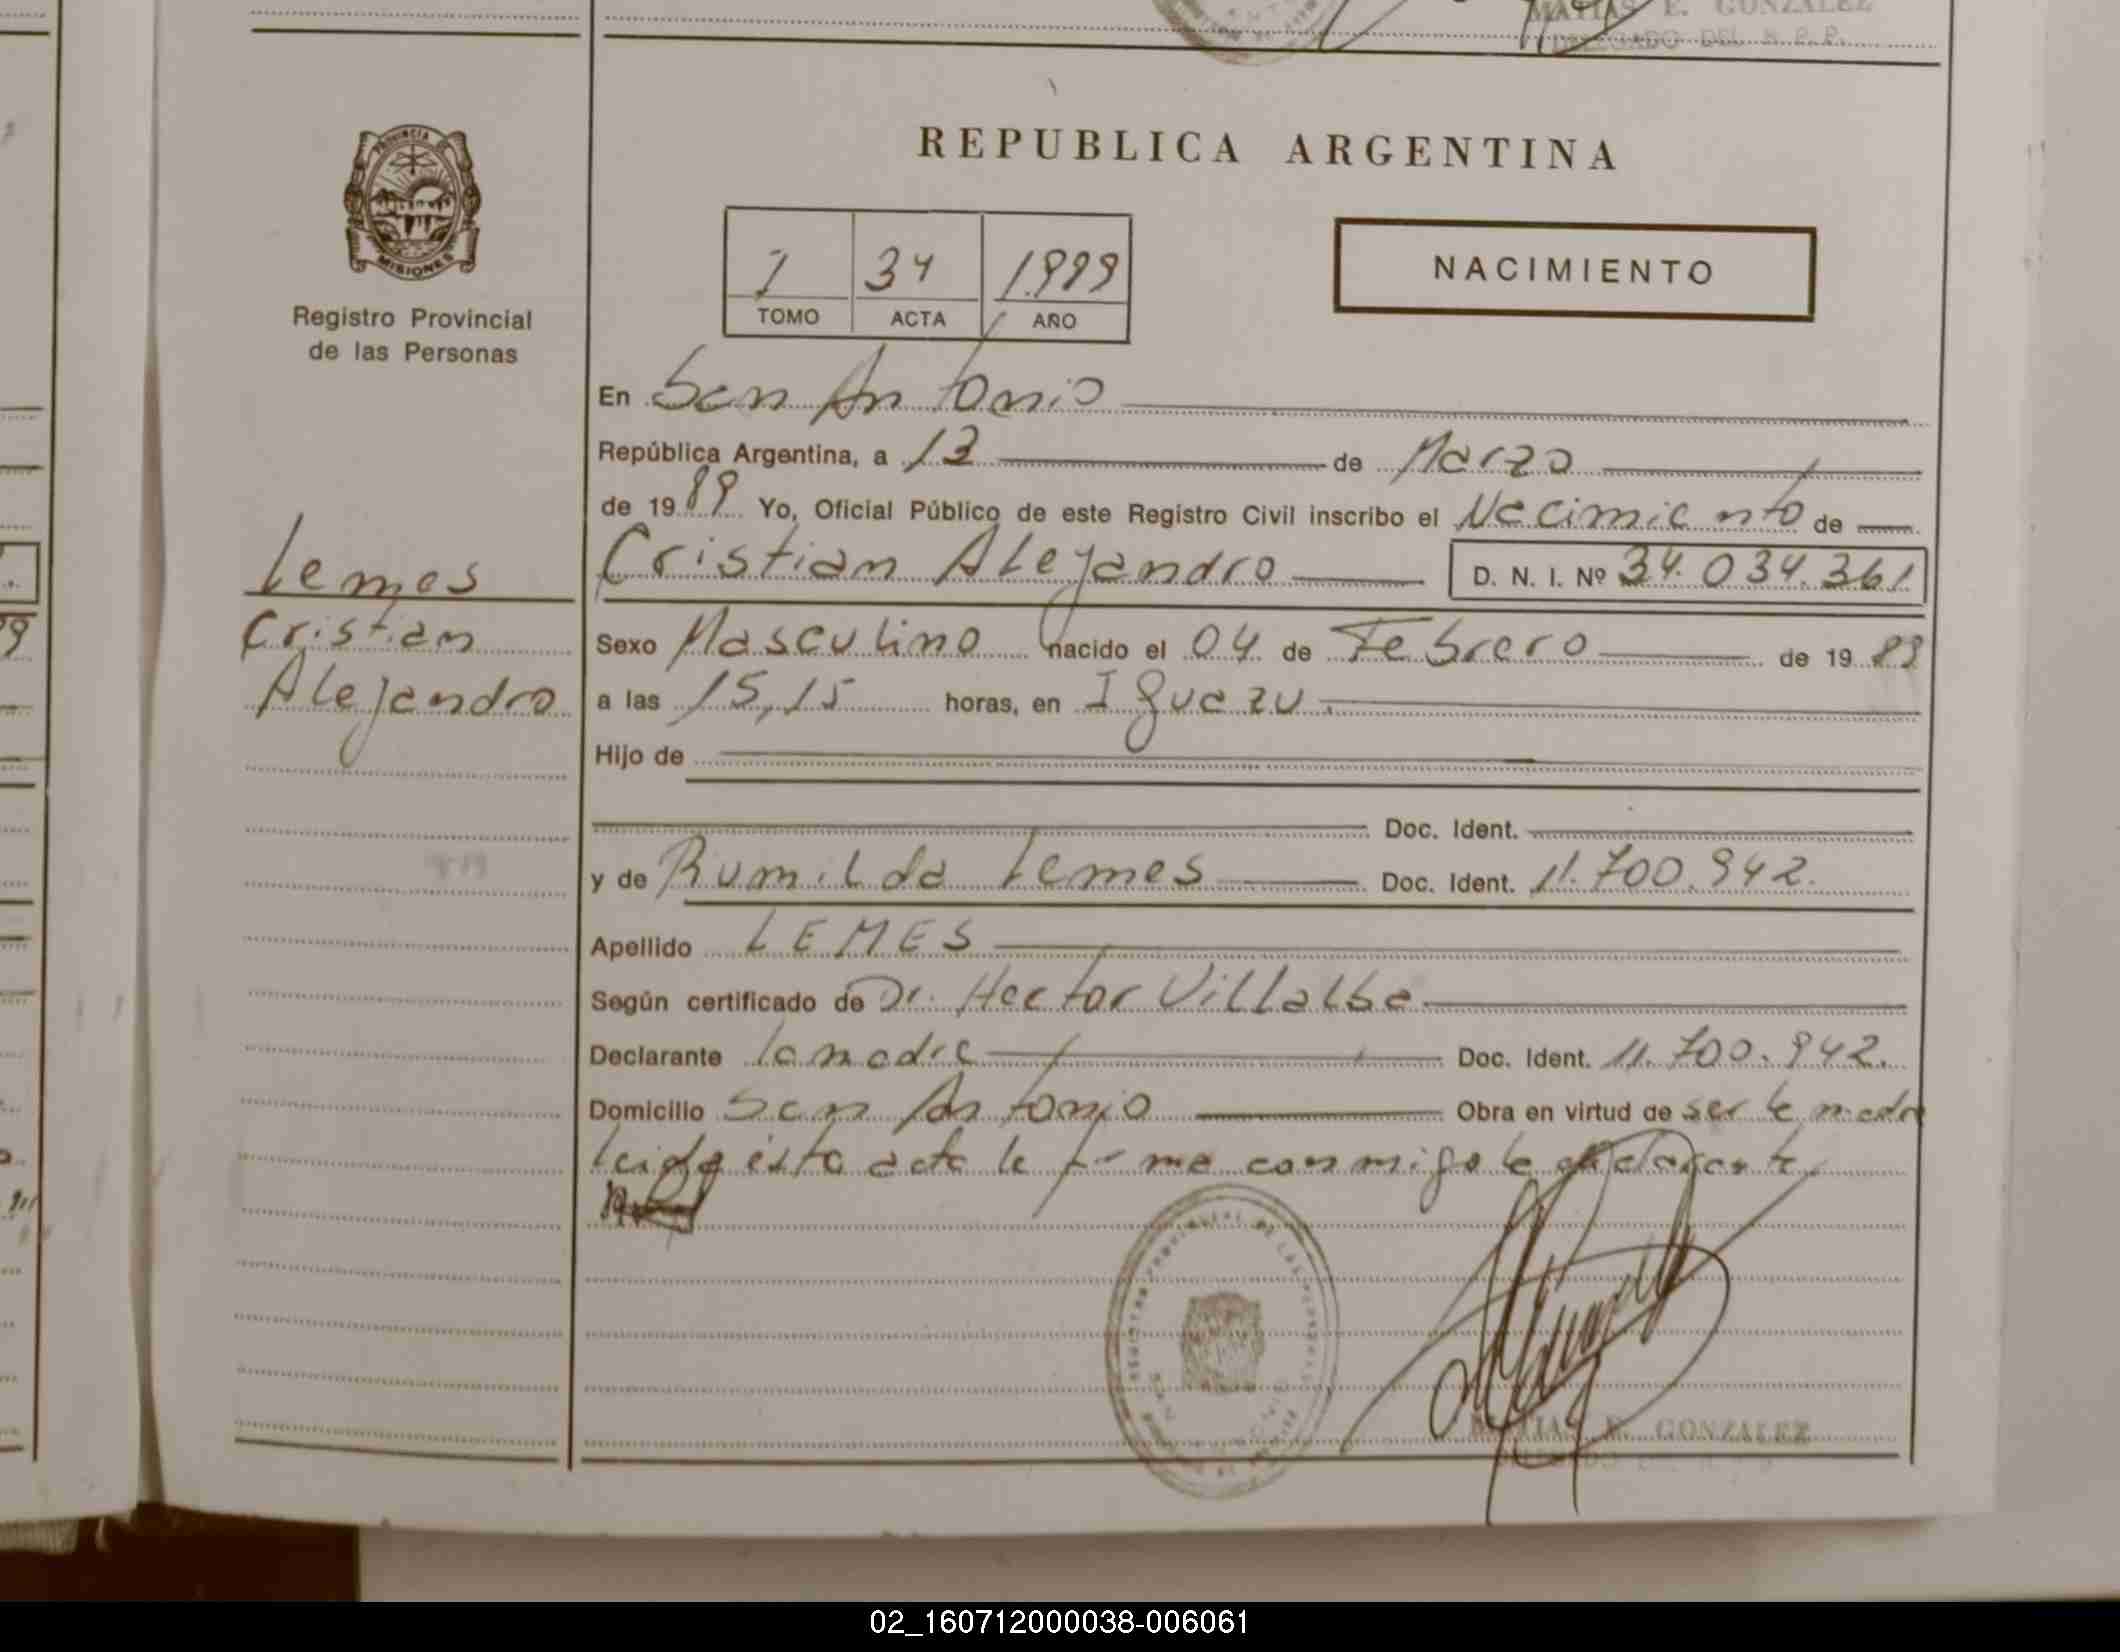 MATIAS E. GONZALEZ
DELEGADO DEL R.P.P.
PROVINCIA DE
MISIONES
Registro Provincial
de las Personas
REPUBLICA ARGENTINA
1 34 1.989
TOMO ACTA AÑO
NACIMIENTO
En San Antonio
República Argentina, a 13 de Marzo
de 1989 Yo, Oficial Público de este Registro Civil inscribo el Nacimiento de
Cristian Alejandro D. N. I. Nº 34.034.361
Lemes
Cristian
Alejandro
Sexo Masculino nacido el 04 de Febrero de 1989
a las 15,15 horas, en Iguazu.
Hijo de
Doc. Ident.
y de Rumilda Lemes Doc. Ident. 11.700.942.
Apellido LEMES
Según certificado de Dr. Hector Villalba
Declarante la madre Doc. Ident. 11.700.942.
Domicilio San Antonio Obra en virtud de ser la madre
leida esta acta la firma conmigo la declarante.
MATIAS E. GONZALEZ
DELEGADO DEL R.P.P.
02_160712000038-006061